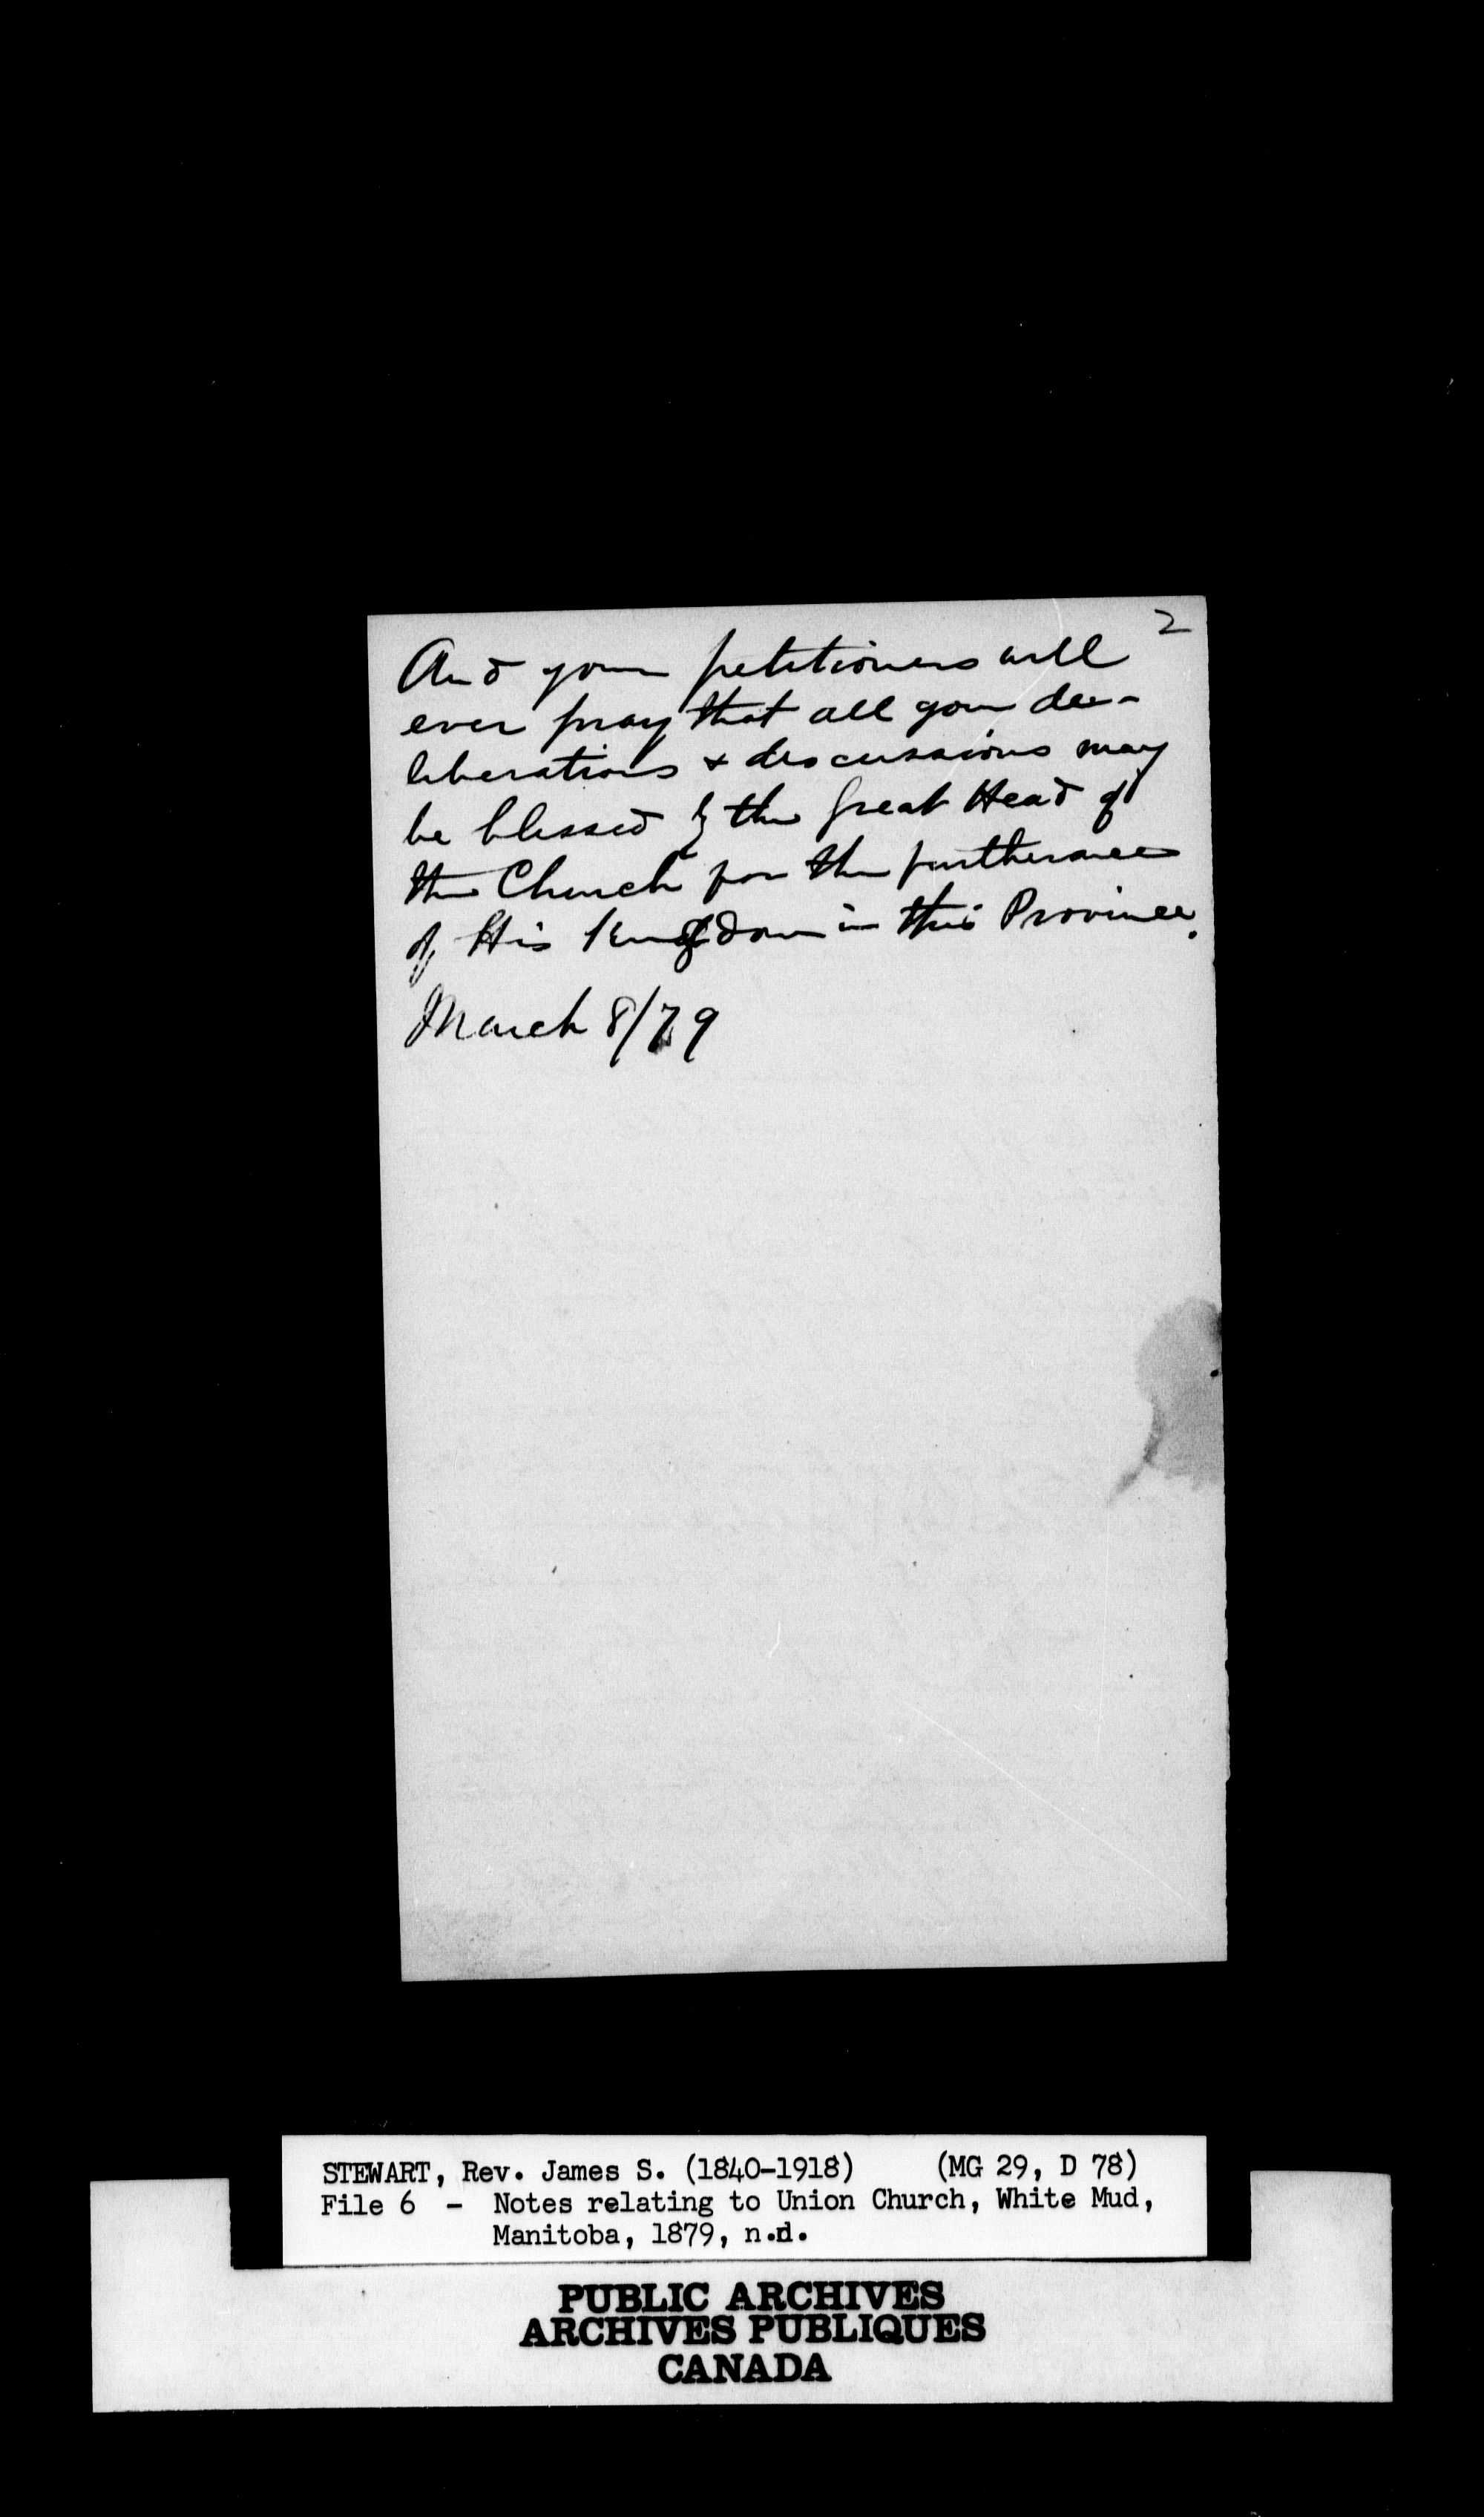 2
And your petitioners will
ever pray that all your dee-
liberations & discussions may
be blessed by the Great Head of
the Church for the furtherance
of His Kingdom in this Province.
March 8/79
STEWART, Rev. James S. (1840-1918) (MG 29, D 78)
File 6 - Notes relating to Union Church, White Mud,
Manitoba, 1879, n.d.
PUBLIC ARCHIVES
ARCHIVES PUBLIQUES
CANADA